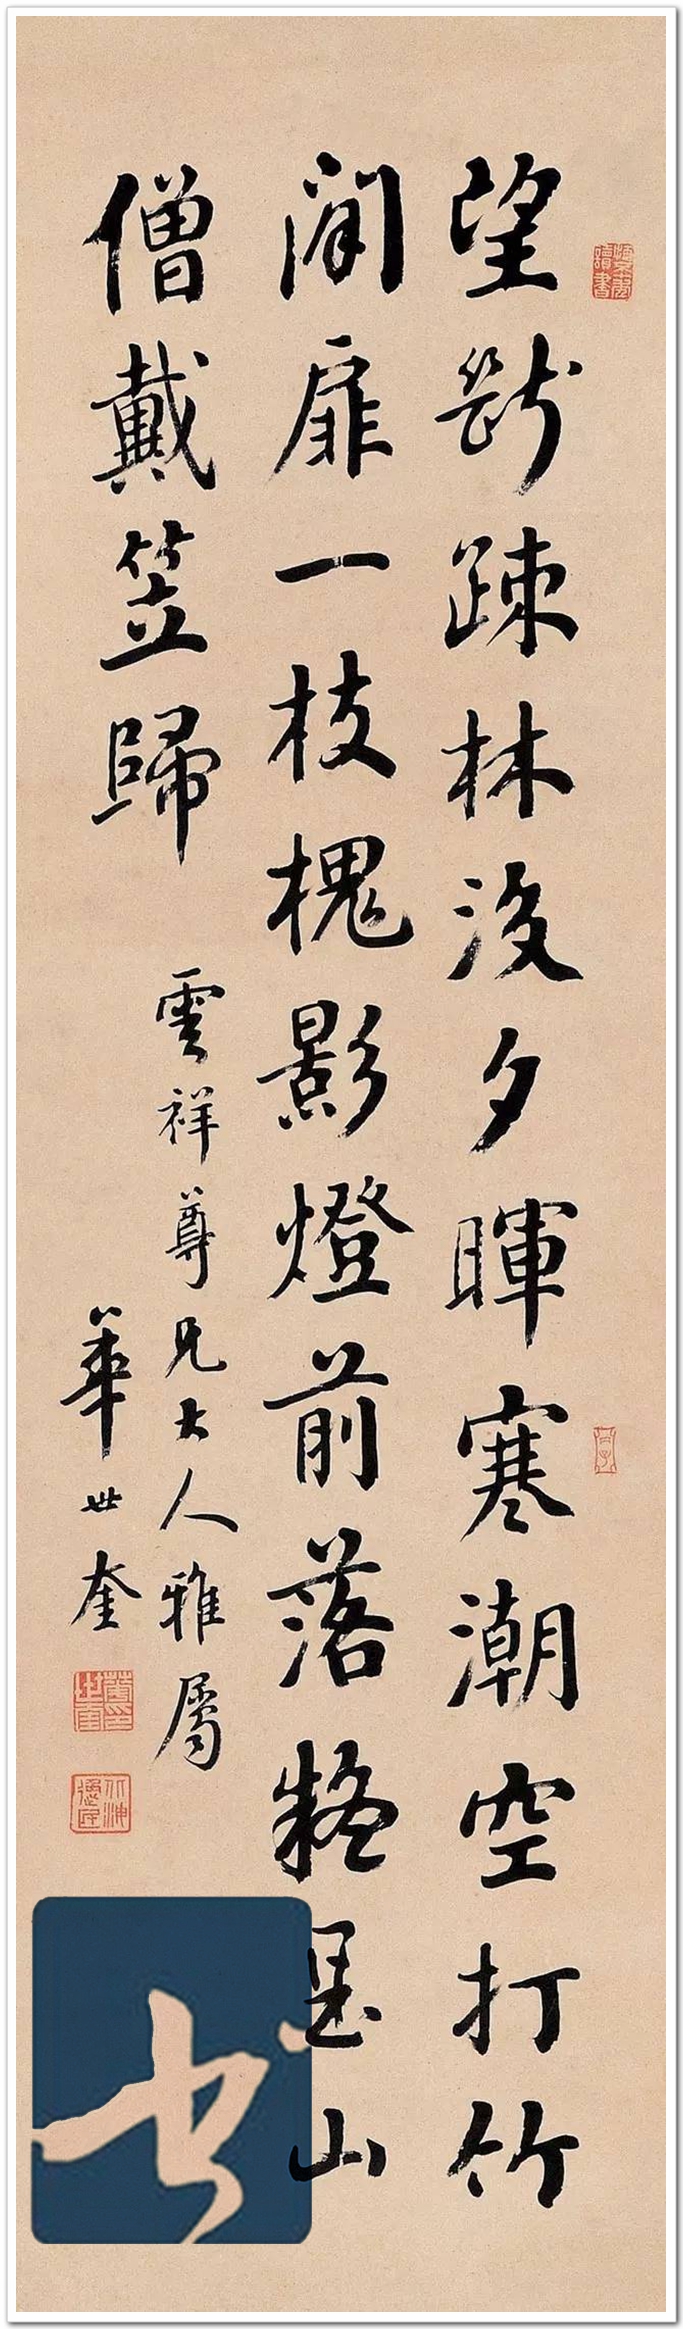 望斷疎林没夕暉寒潮空打竹
閒扉一枝槐影燈前落疑是山
僧戴笠歸
雲祥尊兄大人雅屬
華世奎
书